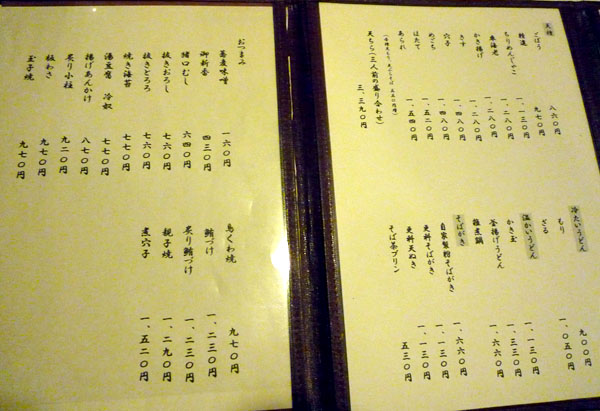 天種
ごぼう 八六〇円
稚鮎 九七〇円
ちりめんじゃこ 一、一三〇円
車海老 一、二八〇円
かき揚げ 一、二八〇円
きす 一、二八〇円
穴子 一、四八〇円
めごち 一、五二〇円
はたて
あられ 一、五四〇円
天ちら(三人前の盛り合わせ) 三、三九〇円
冷たいうどん
もり 九〇〇円
ざる 一、〇五〇円
温かいうどん
かき玉 一、一三〇円
釜揚げうどん 一、三三〇円
雑煮鍋 一、六六〇円
そばがき
自家製粉そばがき 一、六六〇円
更科そばがき 一、一三〇円
更科天ぬき 一、一三〇円
そば茶プリン 五三〇円
おつまみ
蕎麦味噌 一六〇円
御新香 四三〇円
猪口むし 六四〇円
抜きおろし 七六〇円
抜きとろろ 七六〇円
焼き海苔 七七〇円
湯豆腐 冷奴 七七〇円
揚げあんかけ 八七〇円
炙り小柱 九二〇円
板わさ 九七〇円
玉子焼 九七〇円
鳥くわ焼 九七〇円
鮪づけ 一、二三〇円
炙り鮪づけ 一、二三〇円
親子焼 一、二九〇円
煮穴子 一、五二〇円